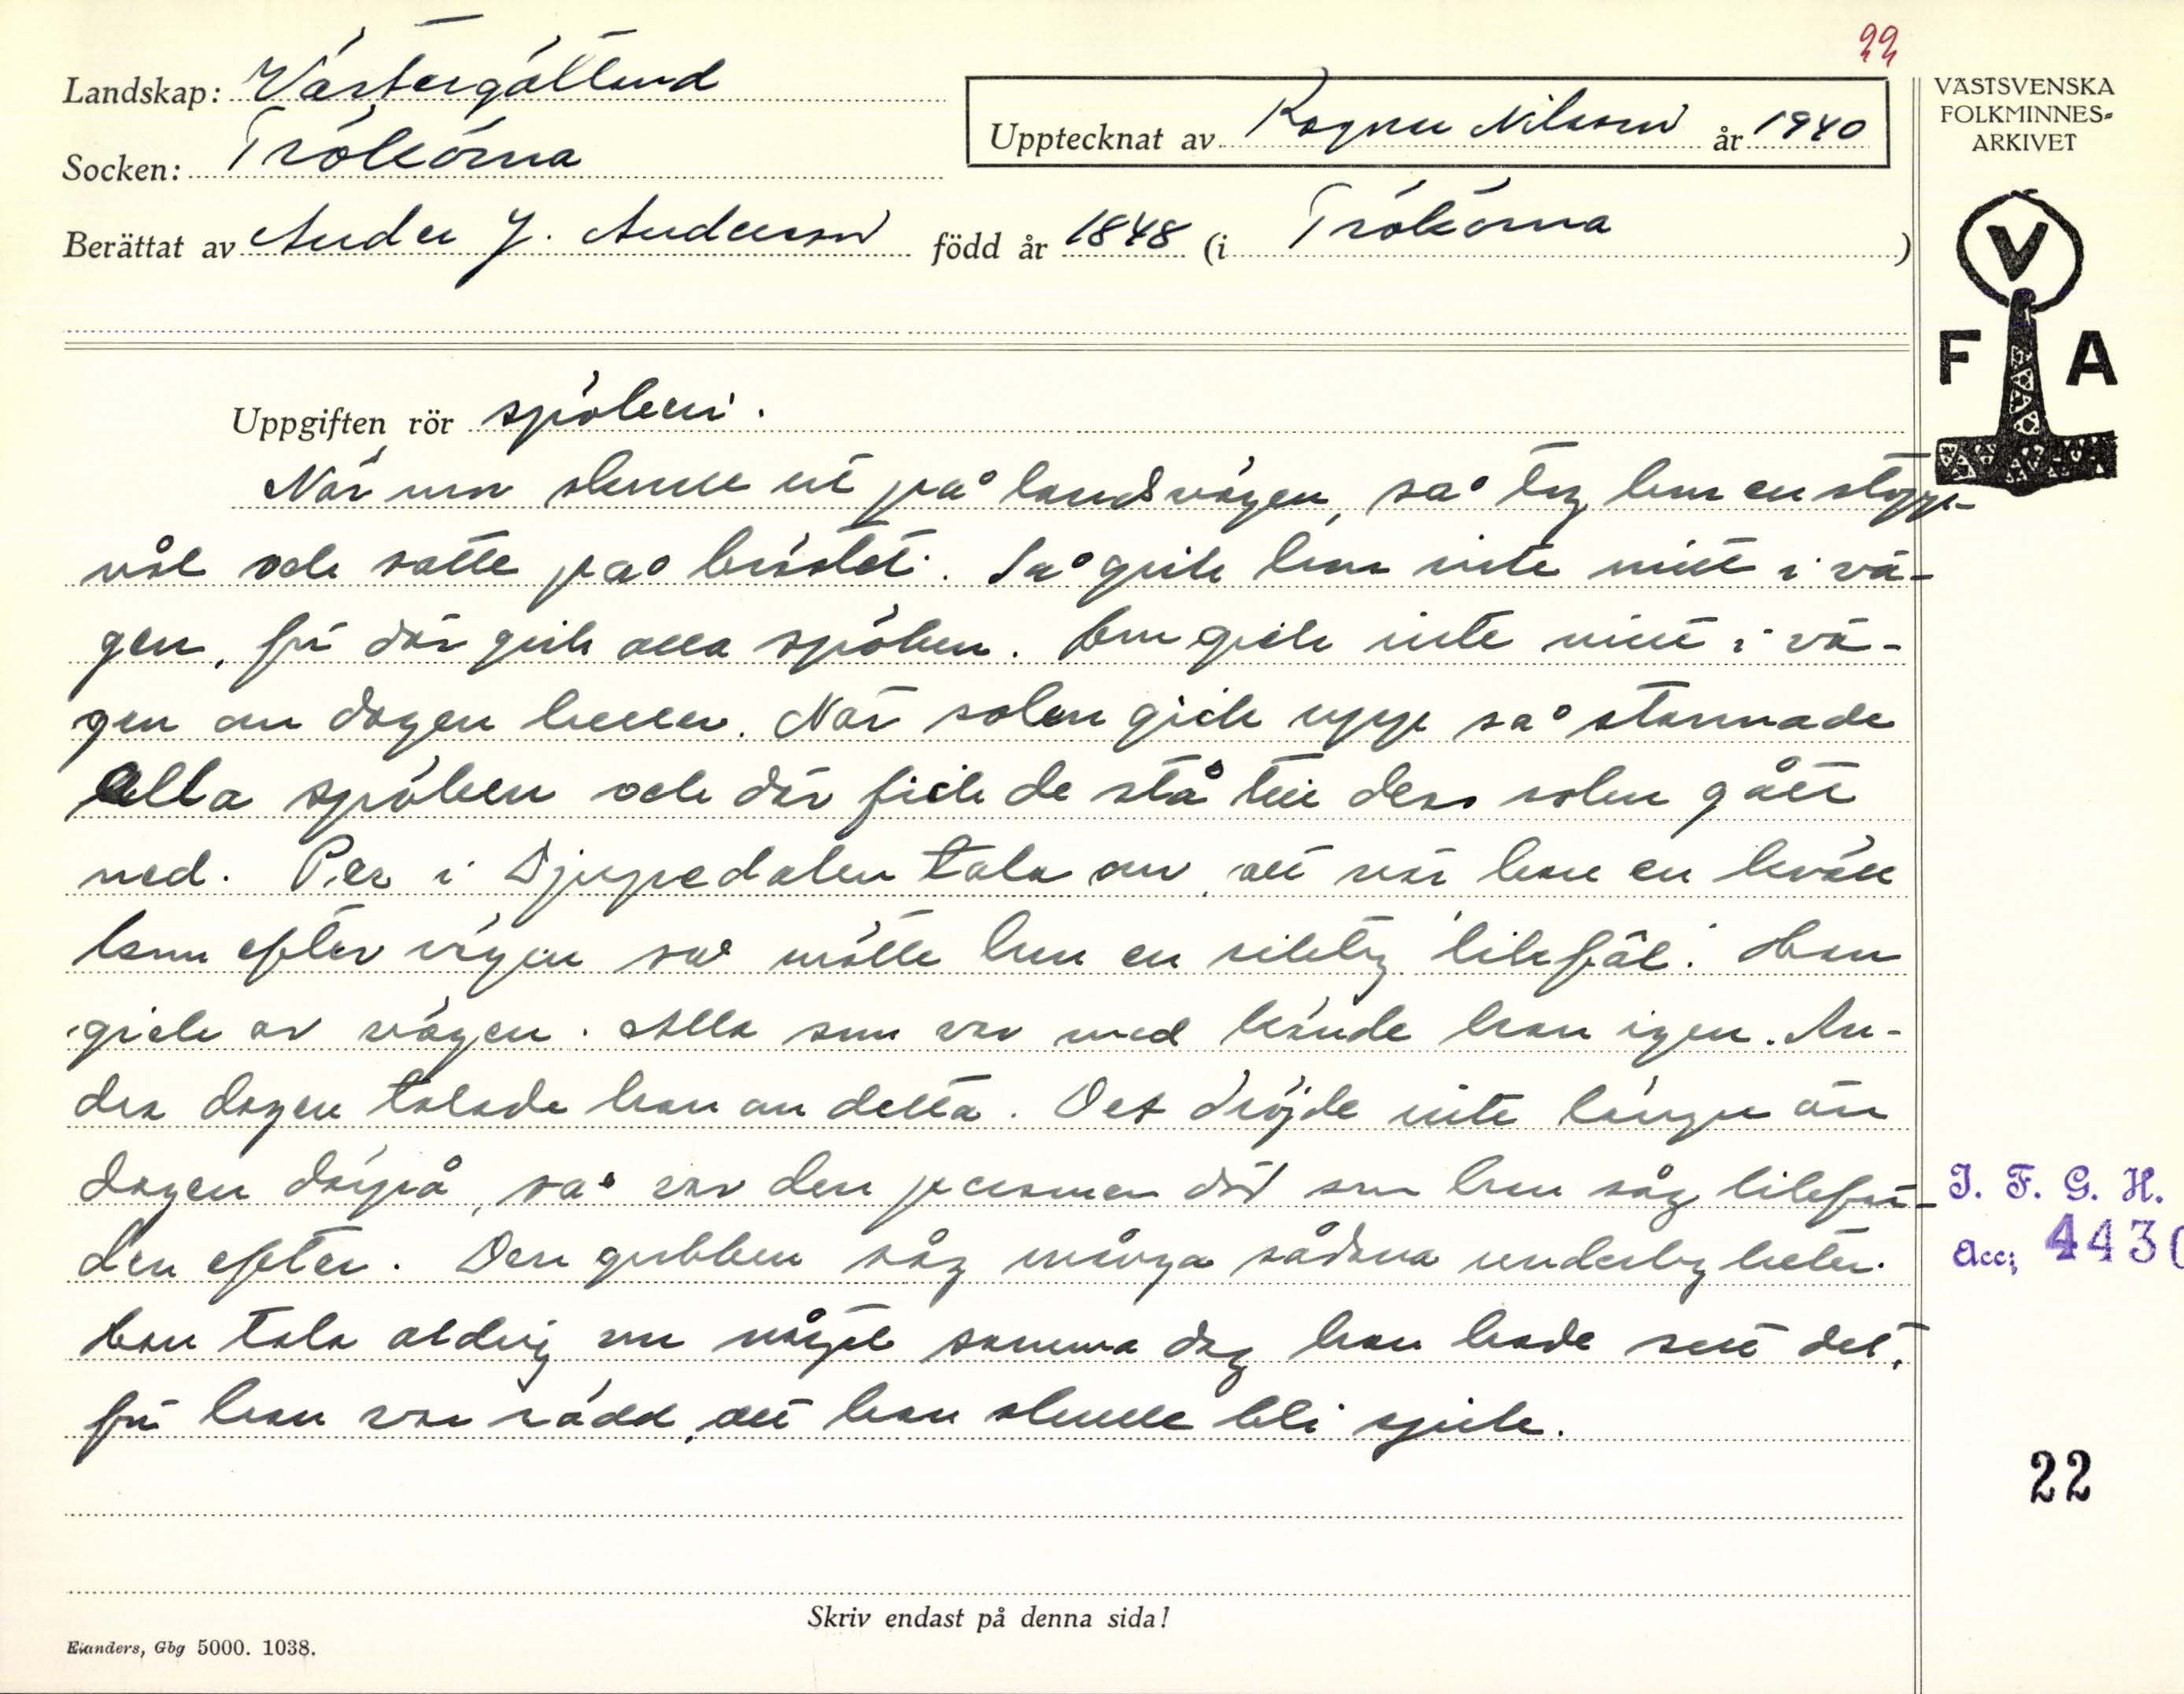 22
Landskap: Västergötland
VÄSTSVENSKA
FOLKMINNES-
ARKIVET
Upptecknat av Ragnar Nilsson år 1940
Socken: Trökörna
Berättat av Anders J. Andersson född år 1848 (i Trökörna)
V
F A
Uppgiften rör spöken.
När man skulle ut på landsvägen, så tog han en
och satte på bröstet. Så gick han inte mitt i vä-
gen, för där gick alla spöken. Han gick inte mitt i vä-
gen om dagen heller. När solen gick upp så stannade
alla spöken och där fick de stå till dess solen gått
ned. Per i Djupedalen tala om, att när han en kväll
kom efter vägen så mötte han en riktig "likfäl". Han
gick av vägen. Alla som var med kände han igen. An-
dra dagen talade han om detta. Det dröjde inte längre än
dagen därpå, så var den personen död som han såg likfär-
den efter. Den gubben såg många sådana underligheter.
Han tala aldrig om något samma dag han hade sett det,
för han var rädd, att han skulle bli sjuk.
I. F. G. H.
Acc; 4430
22
Skriv endast på denna sida!
Elanders, Gbg 5000. 1038.